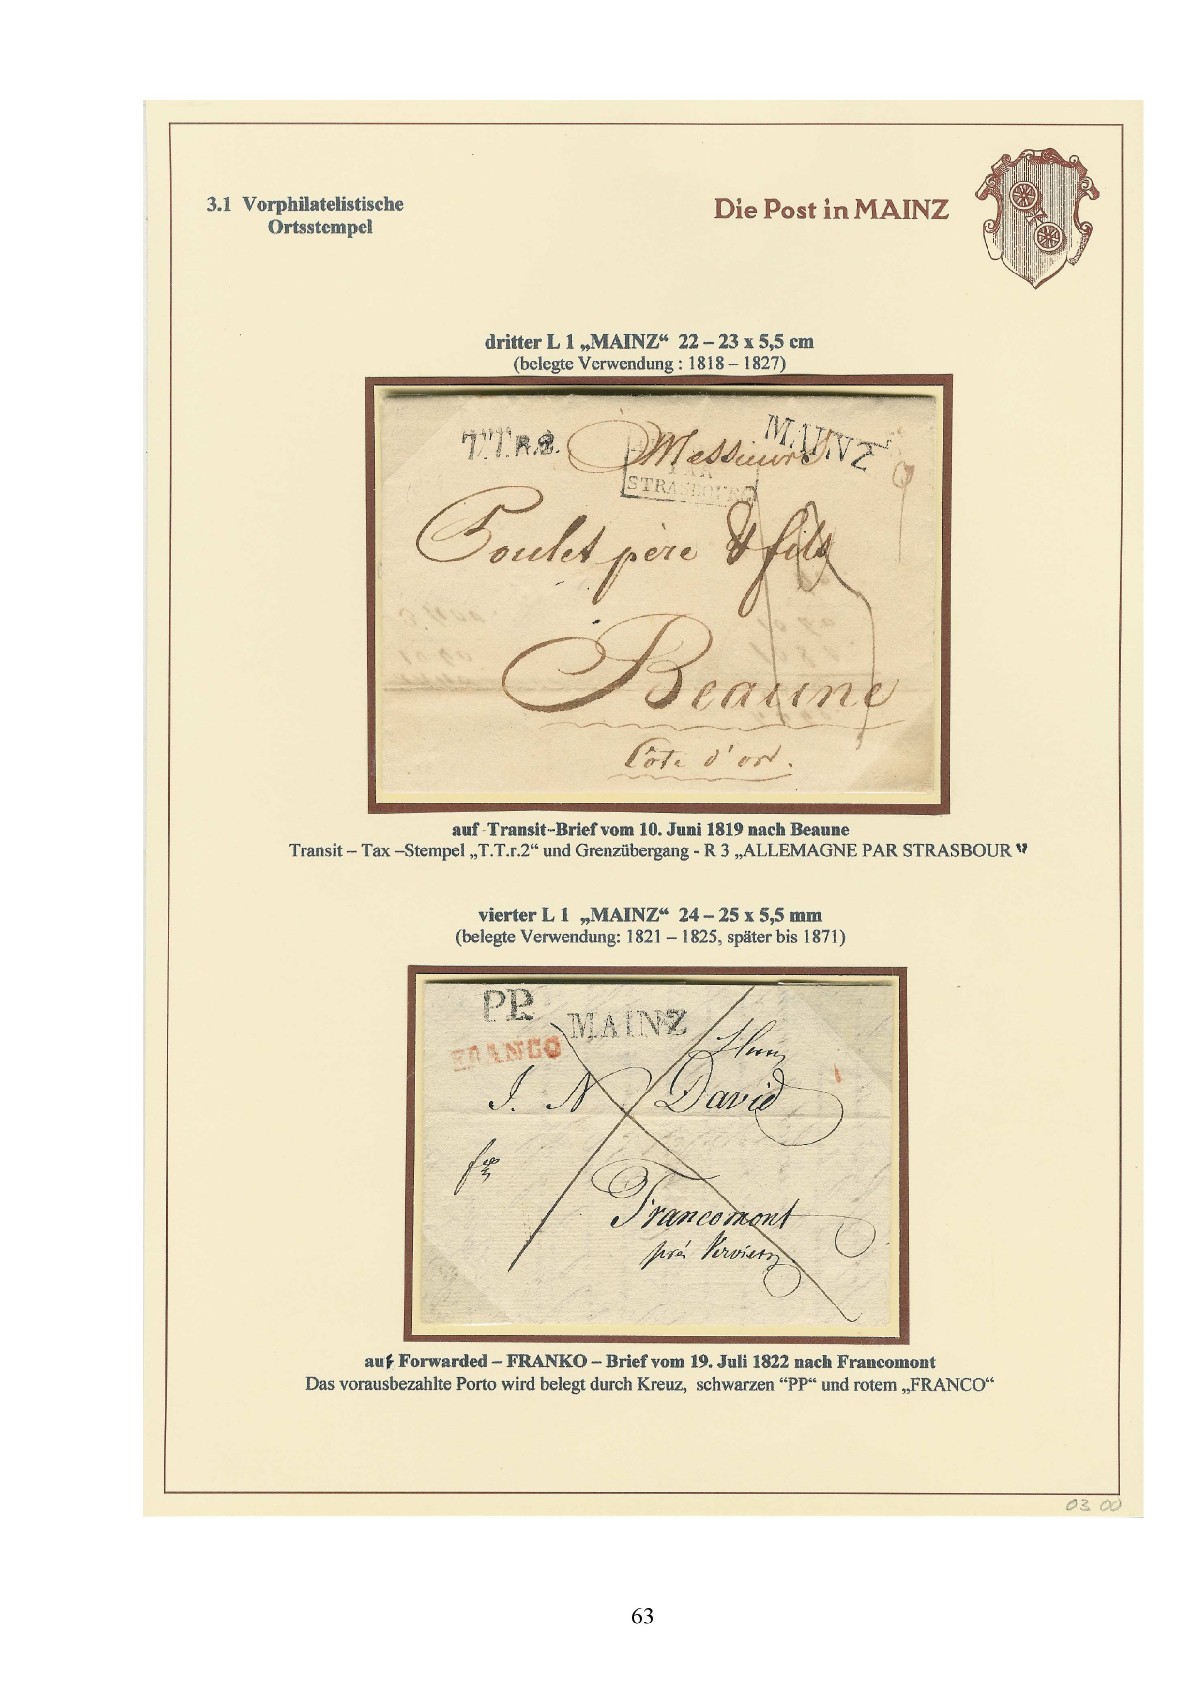 3.1 Vorphilatelistische
Ortsstempel
Die Post in MAINZ
dritter L 1 „MAINZ“ 22 – 23 x 5,5 cm
(belegte Verwendung : 1818 – 1827)
T.T.R.2.
MAINZ
Messieurs
PAR
STRASBOURG
Poulet père & fils
Beaune
Côte d'or.
auf Transit-Brief vom 10. Juni 1819 nach Beaune
Transit – Tax –Stempel „T.T.r.2“ und Grenzübergang - R 3 „ALLEMAGNE PAR STRASBOUR “
vierter L 1 „MAINZ“ 24 – 25 x 5,5 mm
(belegte Verwendung: 1821 – 1825, später bis 1871)
PP.
MAINZ
FRANCO
Herrn
J. N David
Francomont
près Verviers
auf Forwarded – FRANKO – Brief vom 19. Juli 1822 nach Francomont
Das vorausbezahlte Porto wird belegt durch Kreuz, schwarzen “PP“ und rotem „FRANCO“
03 00
63